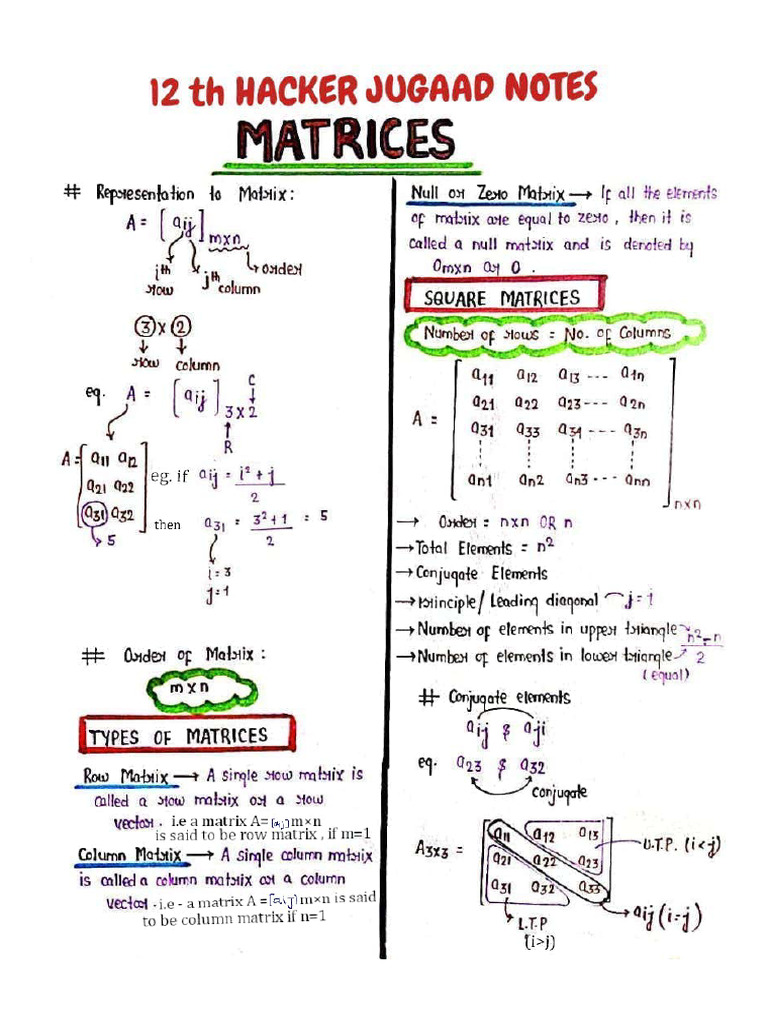 12 th HACKER JUGAAD NOTES
MATRICES
# Representation to Matrix:
A = [aij] m×n
ith row
jth column
order
3 × 2
row column
C
eg. A = [aij] 3×2
R
A = [a11 a12
a21 a22
a31 a32]
5
eg. if aij = i²+j / 2
then a31 = 3²+1 / 2 = 5
i=3
j=1
# Order of Matrix:
m×n
TYPES OF MATRICES
Row Matrix → A single row matrix is
called a row matrix or a row
vector. i.e a matrix A=[aij]m×n
is said to be row matrix , if m=1
Column Matrix → A single column matrix
is called a column matrix or a column
vector - i.e - a matrix A =[aij]m×n is said
to be column matrix if n=1
Null or Zero Matrix → If all the elements
of matrix are equal to zero, then it is
called a null matrix and is denoted by
Om×n or O.
SQUARE MATRICES
Number of rows = No. of Columns
A = [a11 a12 a13 --- a1n
a21 a22 a23 --- a2n
a31 a33 a34 --- a3n
an1 an2 an3 --- ann] n×n
→ Order = n×n OR n
→ Total Elements = n²
→ Conjugate Elements
→ Principle/ Leading diagonal j=i
→ Number of elements in upper triangle
→ Number of elements in lower triangle
n²-n / 2
(equal)
# Conjugate elements
aij & aji
eg. a23 & a32
conjugate
A3×3 = [a11 a12 a13
a21 a22 a23
a31 a32 a33]
U.T.P. (i<j)
aij (i=j)
L.T.P
(i>j)